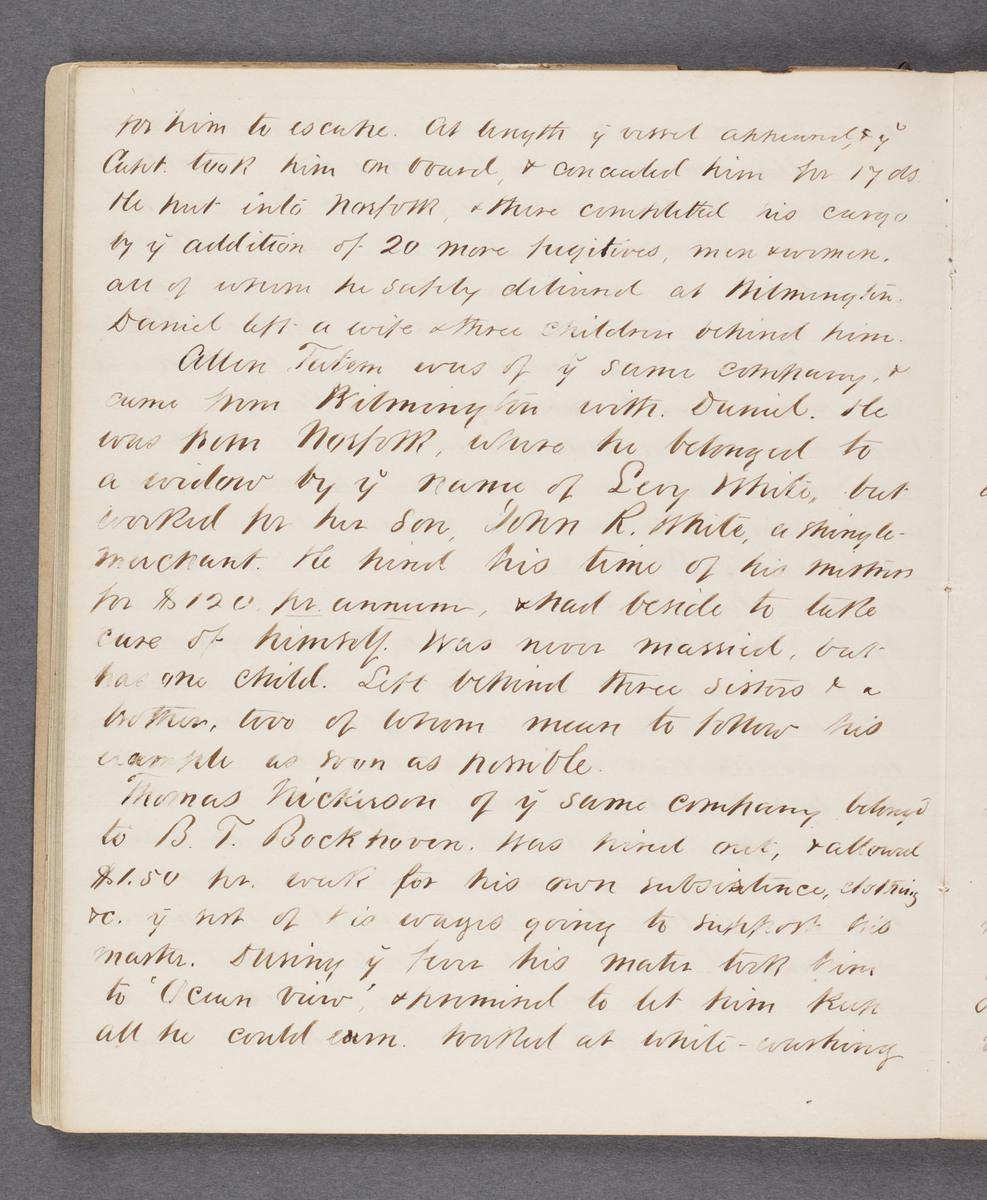 for him to escape. At length ÿ vessel appeared, & ÿ
Capt. took him on board, & concealed him for 17 ds.
He put into Norfolk, & there completed his cargo
by ÿ addition of 20 more fugitives, men & women.
all of whom he safely delivered at Wilmington.
Daniel left a wife & three children behind him.
Allen Tatem was of ÿ same company, &
came from Wilmington with Daniel. He
was from Norfolk, where he belonged to
a widow by ÿ name of Levy White, but
worked for her son, John R. White, a shingle-
merchant. He hired his time of his mistress
for $120 pr. annum, & had beside to take
care of himself. Was never married, but
has one child. Left behind three sisters & a
brother, two of whom mean to follow his
example as soon as possible.
Thomas Nickerson of ÿ same company belong'd
to B. T. Bockhoven. Was hired out, & allowed
$1.50 pr. week for his own subsistence, clothing
&c. ÿ rest of his wages going to support his
master. During ÿ fever his mater took him
to 'Ocean view', & promised to let him keep
all he could earn. Worked at white-washing